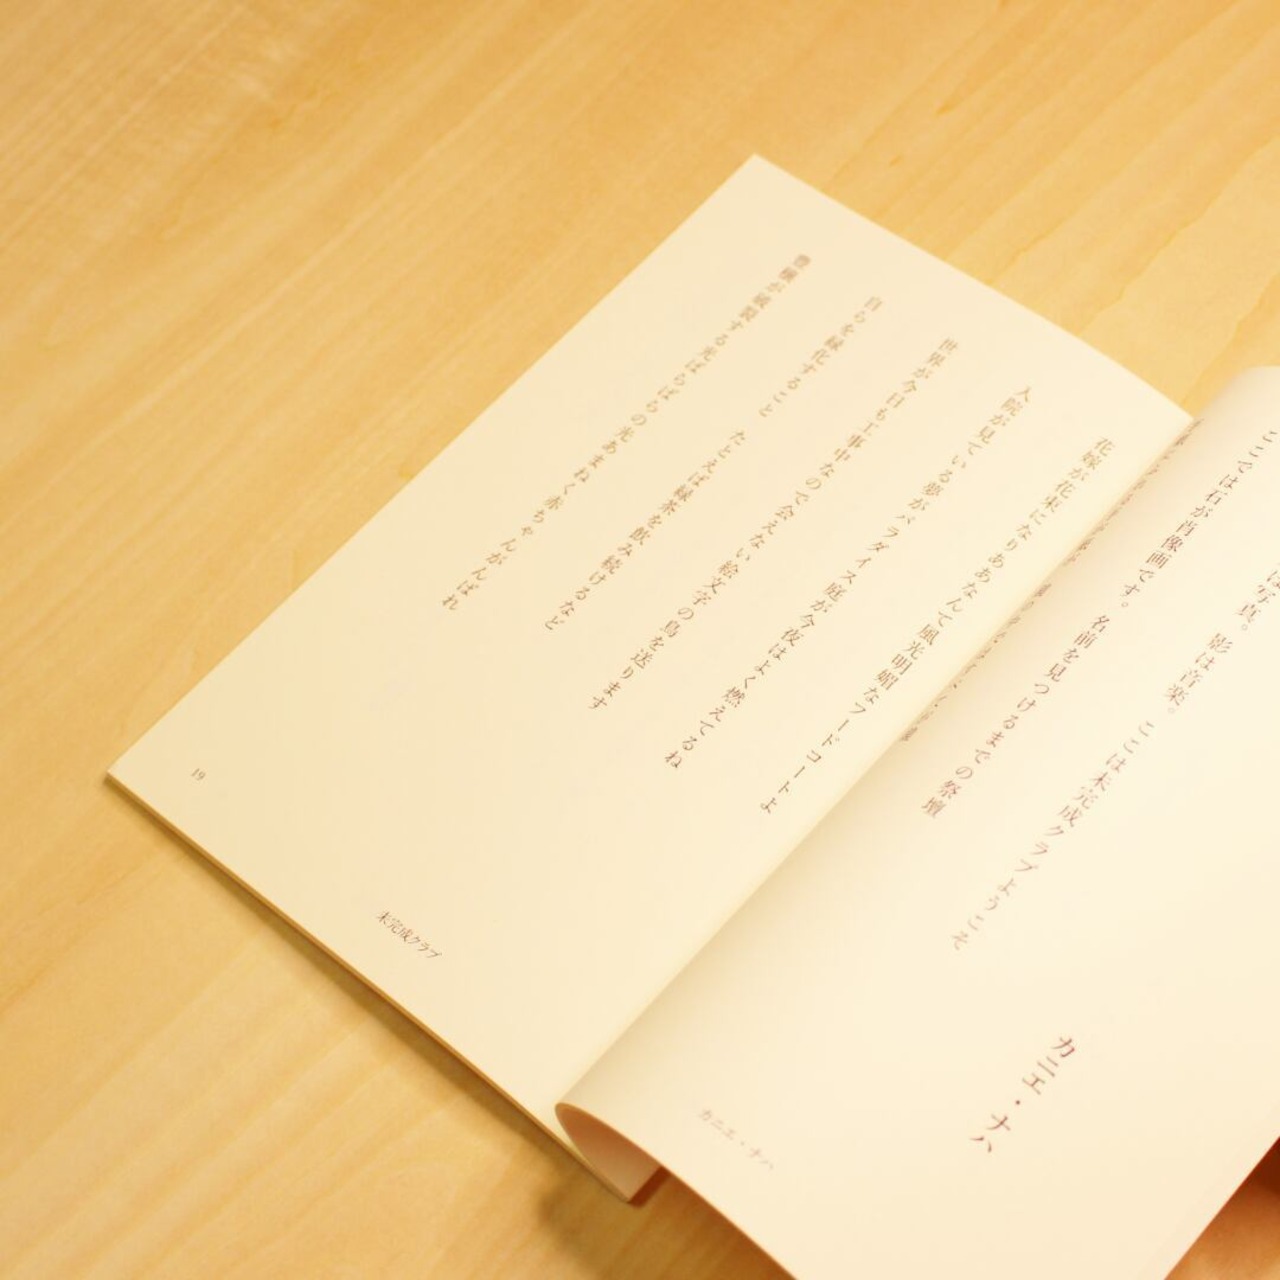 は写真。影は音楽。ここは未完成クラブようこそ
ここでは石が肖像画です。名前を見つけるまでの祭壇
カニエ・ナハ
カニエ・ナハ
花嫁が花束になりああなんて風光明媚なフードコートよ
入院が見ている夢がパラダイス庭が今夜はよく燃えてるね
世界が今日も工事中なので会えない絵文字の鳥を送ります
自らを緑化すること　たとえば緑茶を飲み続けるなど
豊穣が破裂する光ばらばらの光あまねく赤ちゃんがんばれ
未完成クラブ
19